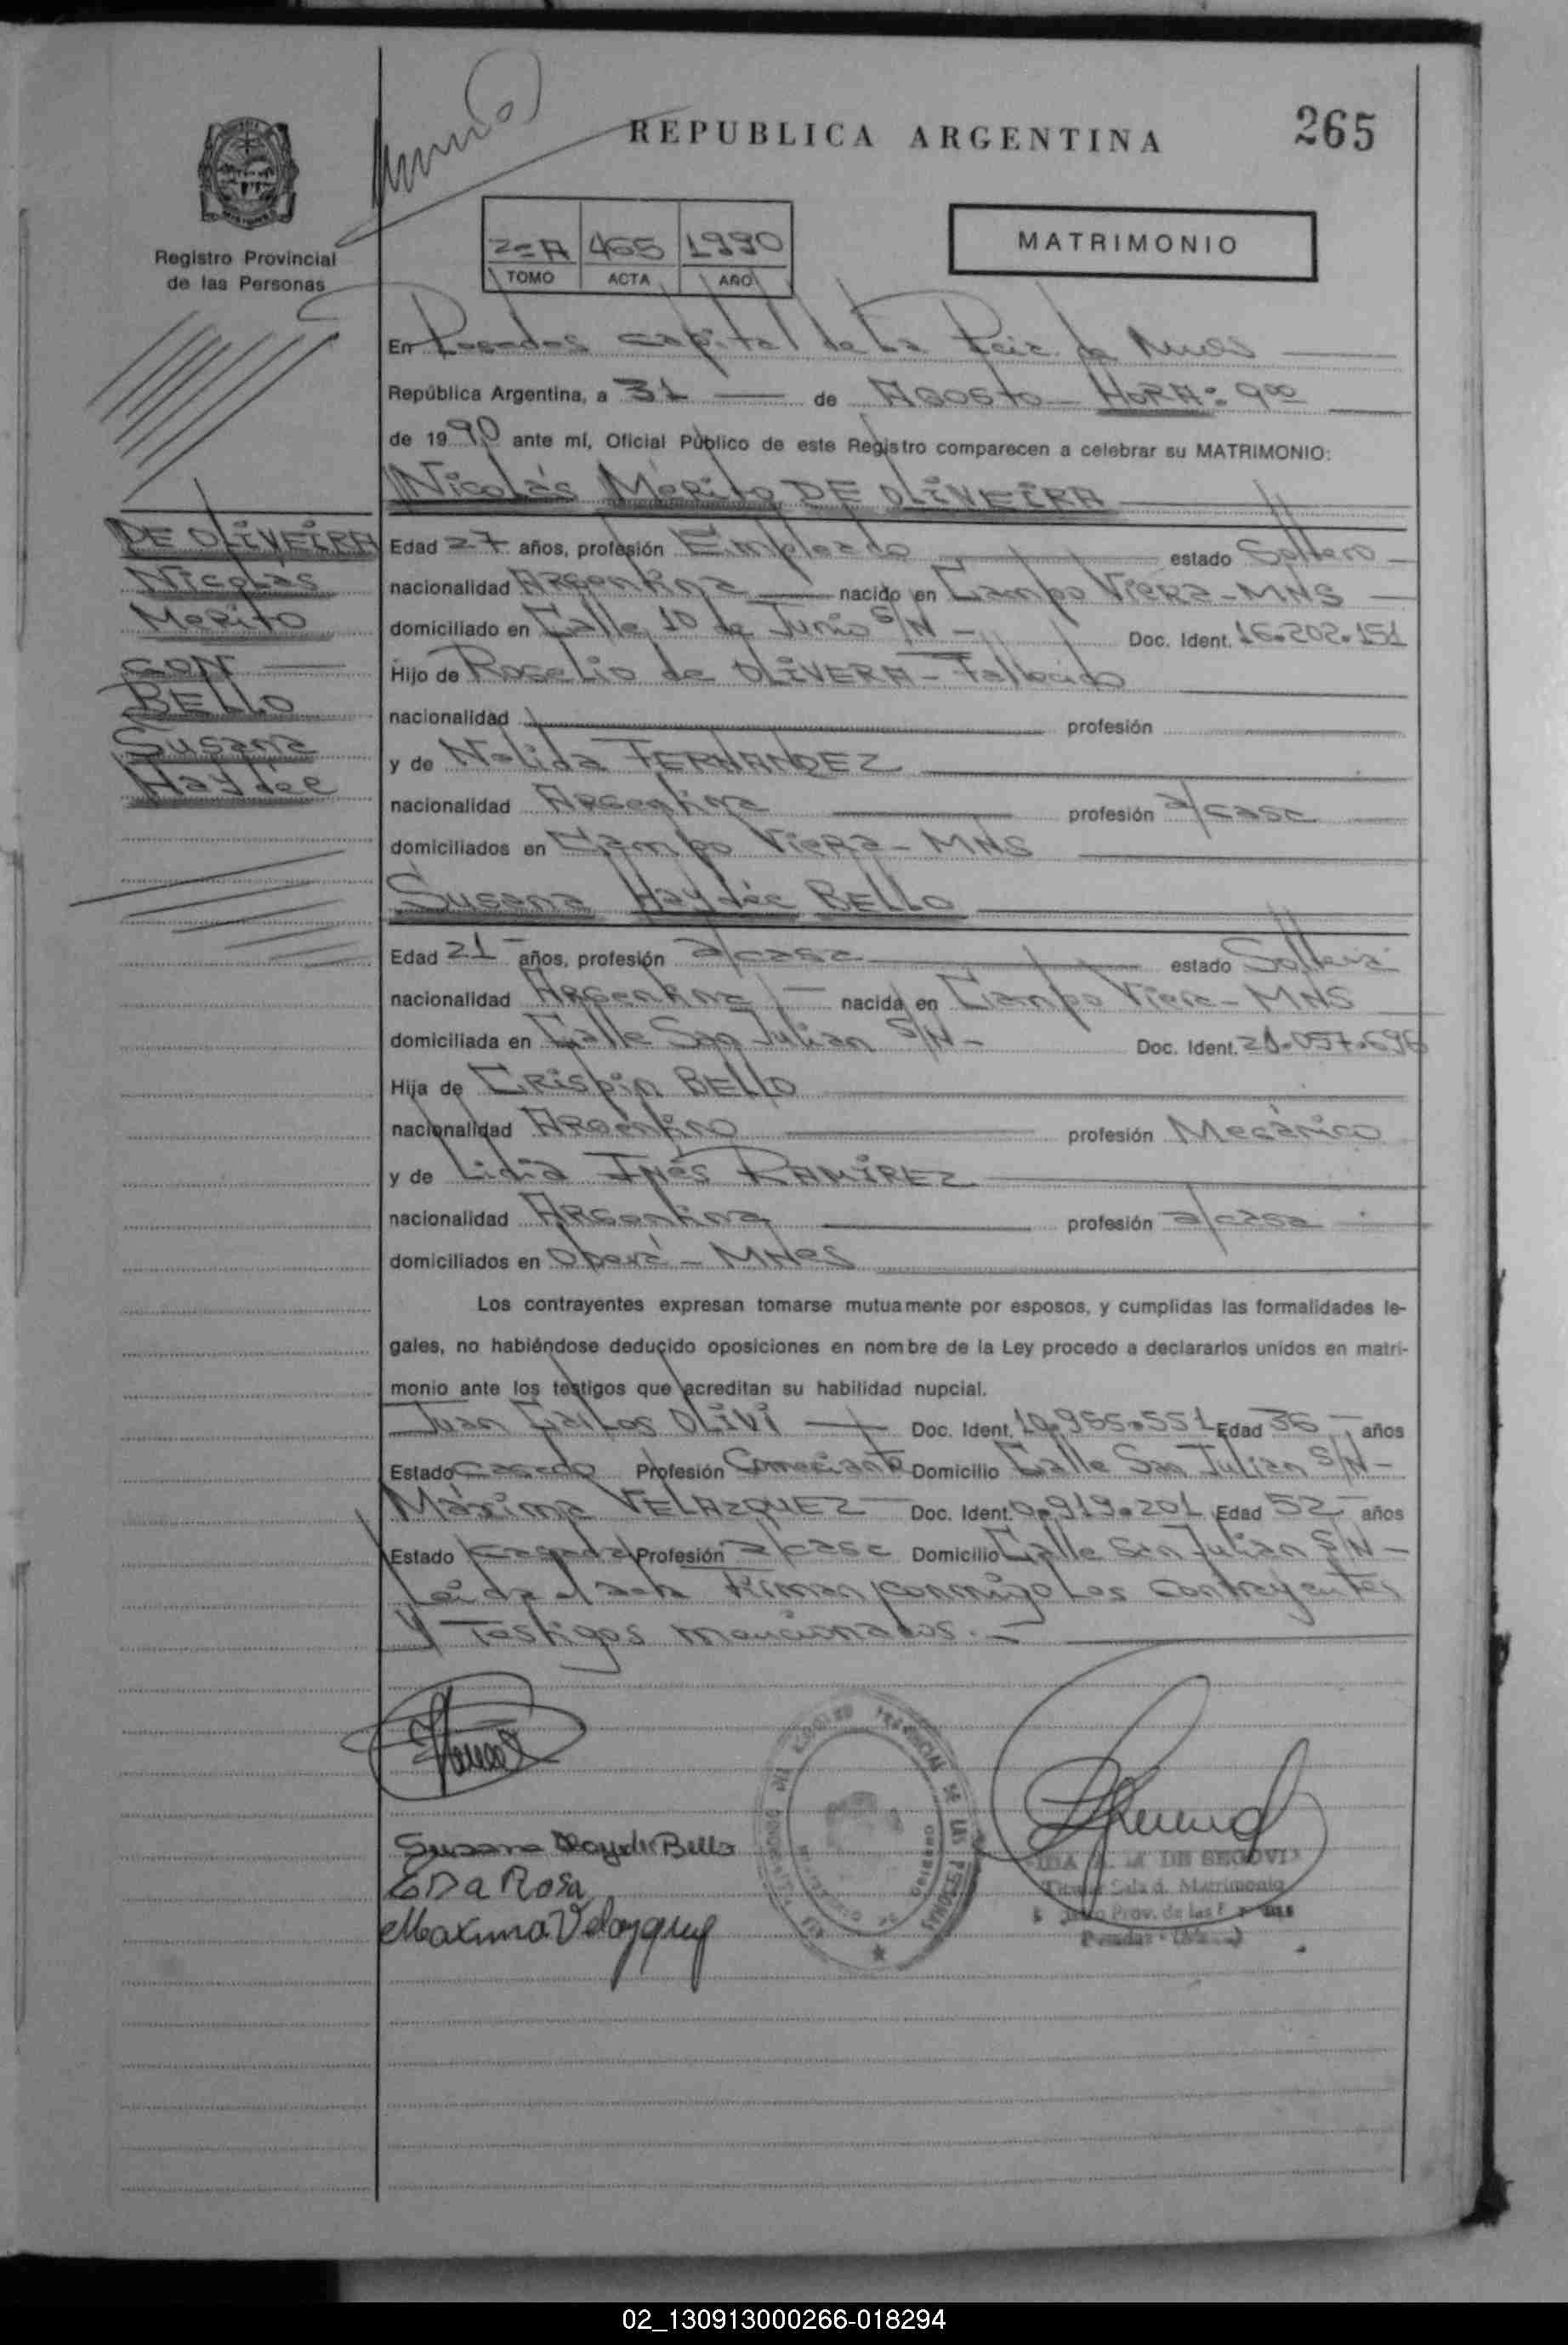 REPUBLICA ARGENTINA
265
Registro Provincial
de las Personas
2=A 465 1990
TOMO ACTA AÑO
MATRIMONIO
En Posadas capital de la Pcia. de Mnes
República Argentina, a 31 — de AGOSTO - HORA: 900
de 1990 ante mí, Oficial Público de este Registro comparecen a celebrar su MATRIMONIO:
Nicolás Mérito DE OLIVEIRA
DE OLIVEIRA
Nicolás
Merito
CON
BELLO
Susana
Haydée
Edad 27 años, profesión Empleado estado Soltero
nacionalidad Argentina nacido en Campo Viera - MNS
domiciliado en Calle 10 de Junio S/N - Doc. Ident. 16.202.151
Hijo de Roselio de OLIVERA - Fallecido
nacionalidad profesión
y de Nelida FERNANDEZ
nacionalidad Argentina profesión a/casa
domiciliados en Campo Viera - MNS
Susana Haydée BELLO
Edad 21 años, profesión a/casa estado Soltera
nacionalidad Argentina nacida en Campo Viera - MNS
domiciliada en Calle San Julian S/N - Doc. Ident. 21.057.696
Hija de Crispin BELLO
nacionalidad Argentino profesión Mecánico
y de Lidia Inés RAMIREZ
nacionalidad Argentina profesión a/casa
domiciliados en Oberá - MNes
Los contrayentes expresan tomarse mutuamente por esposos, y cumplidas las formalidades le-
gales, no habiéndose deducido oposiciones en nombre de la Ley procedo a declararlos unidos en matri-
monio ante los testigos que acreditan su habilidad nupcial.
Juan Carlos OLIVI Doc. Ident. 10.955.551 Edad 36 años
Estado casado Profesión Comerciante Domicilio Calle San Julian S/N -
Máxima VELAZQUEZ Doc. Ident. 0.919.201 Edad 52 años
Estado casada Profesión a/casa Domicilio Calle San Julian S/N -
Leida el acta firman conmigo los contrayentes
y testigos mencionados. -
Susana Haydée Bello
E Da Rosa
Maxima Velazquez
DE SEGOVIA
Titular Sala d. Matrimonio
Prov. de las
02_130913000266-018294